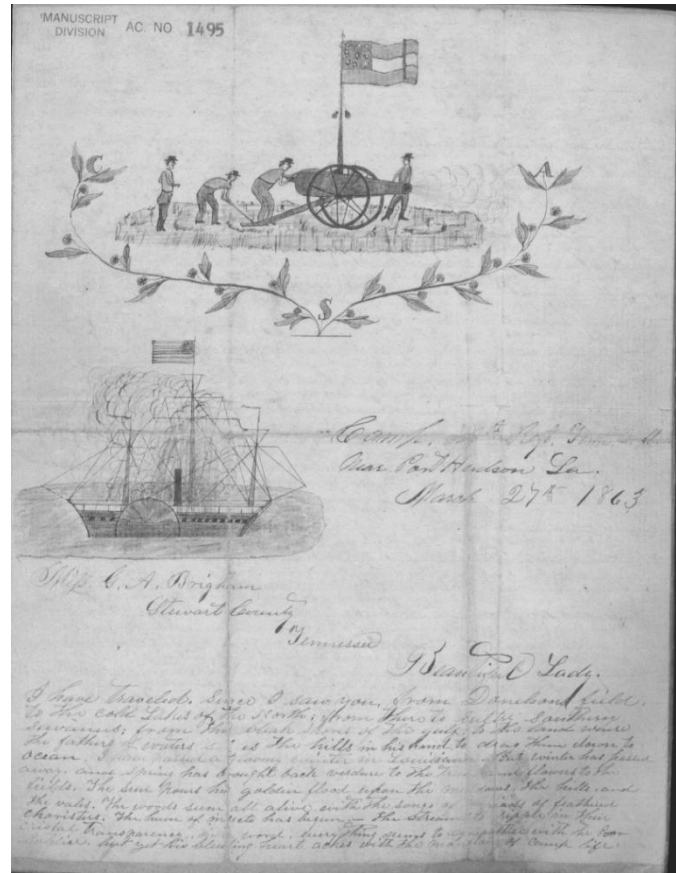 MANUSCRIPT
DIVISION AC. NO 1495
C A
S
Camp, Regt. Tenn.
Near Port Hudson La.
March 27th 1863
Miss G. A. Brigham
Stewart County
Tennessee
Beautiful Lady.
I have traveled, since I saw you, from Donelson's field,
to the cold Lakes of the North; from there to Southern
from the of the gulf, to this land where
the father of waters the hills in his hand to drag them down to
ocean. I have passed a winter in Louisiana. But winter has passed
away, and spring has brought back verdure to the trees and flowers to the
fields. The sun pours his golden flood upon the meadows, the hills, and
the vales. The woods seem all alive with the songs of of feathered
choristers. The hum of insects has begun the streams ripple in their
cristal transparence, word, everything seems to with the poor
soldier, but yet his bleeding heart aches with the of camp life.